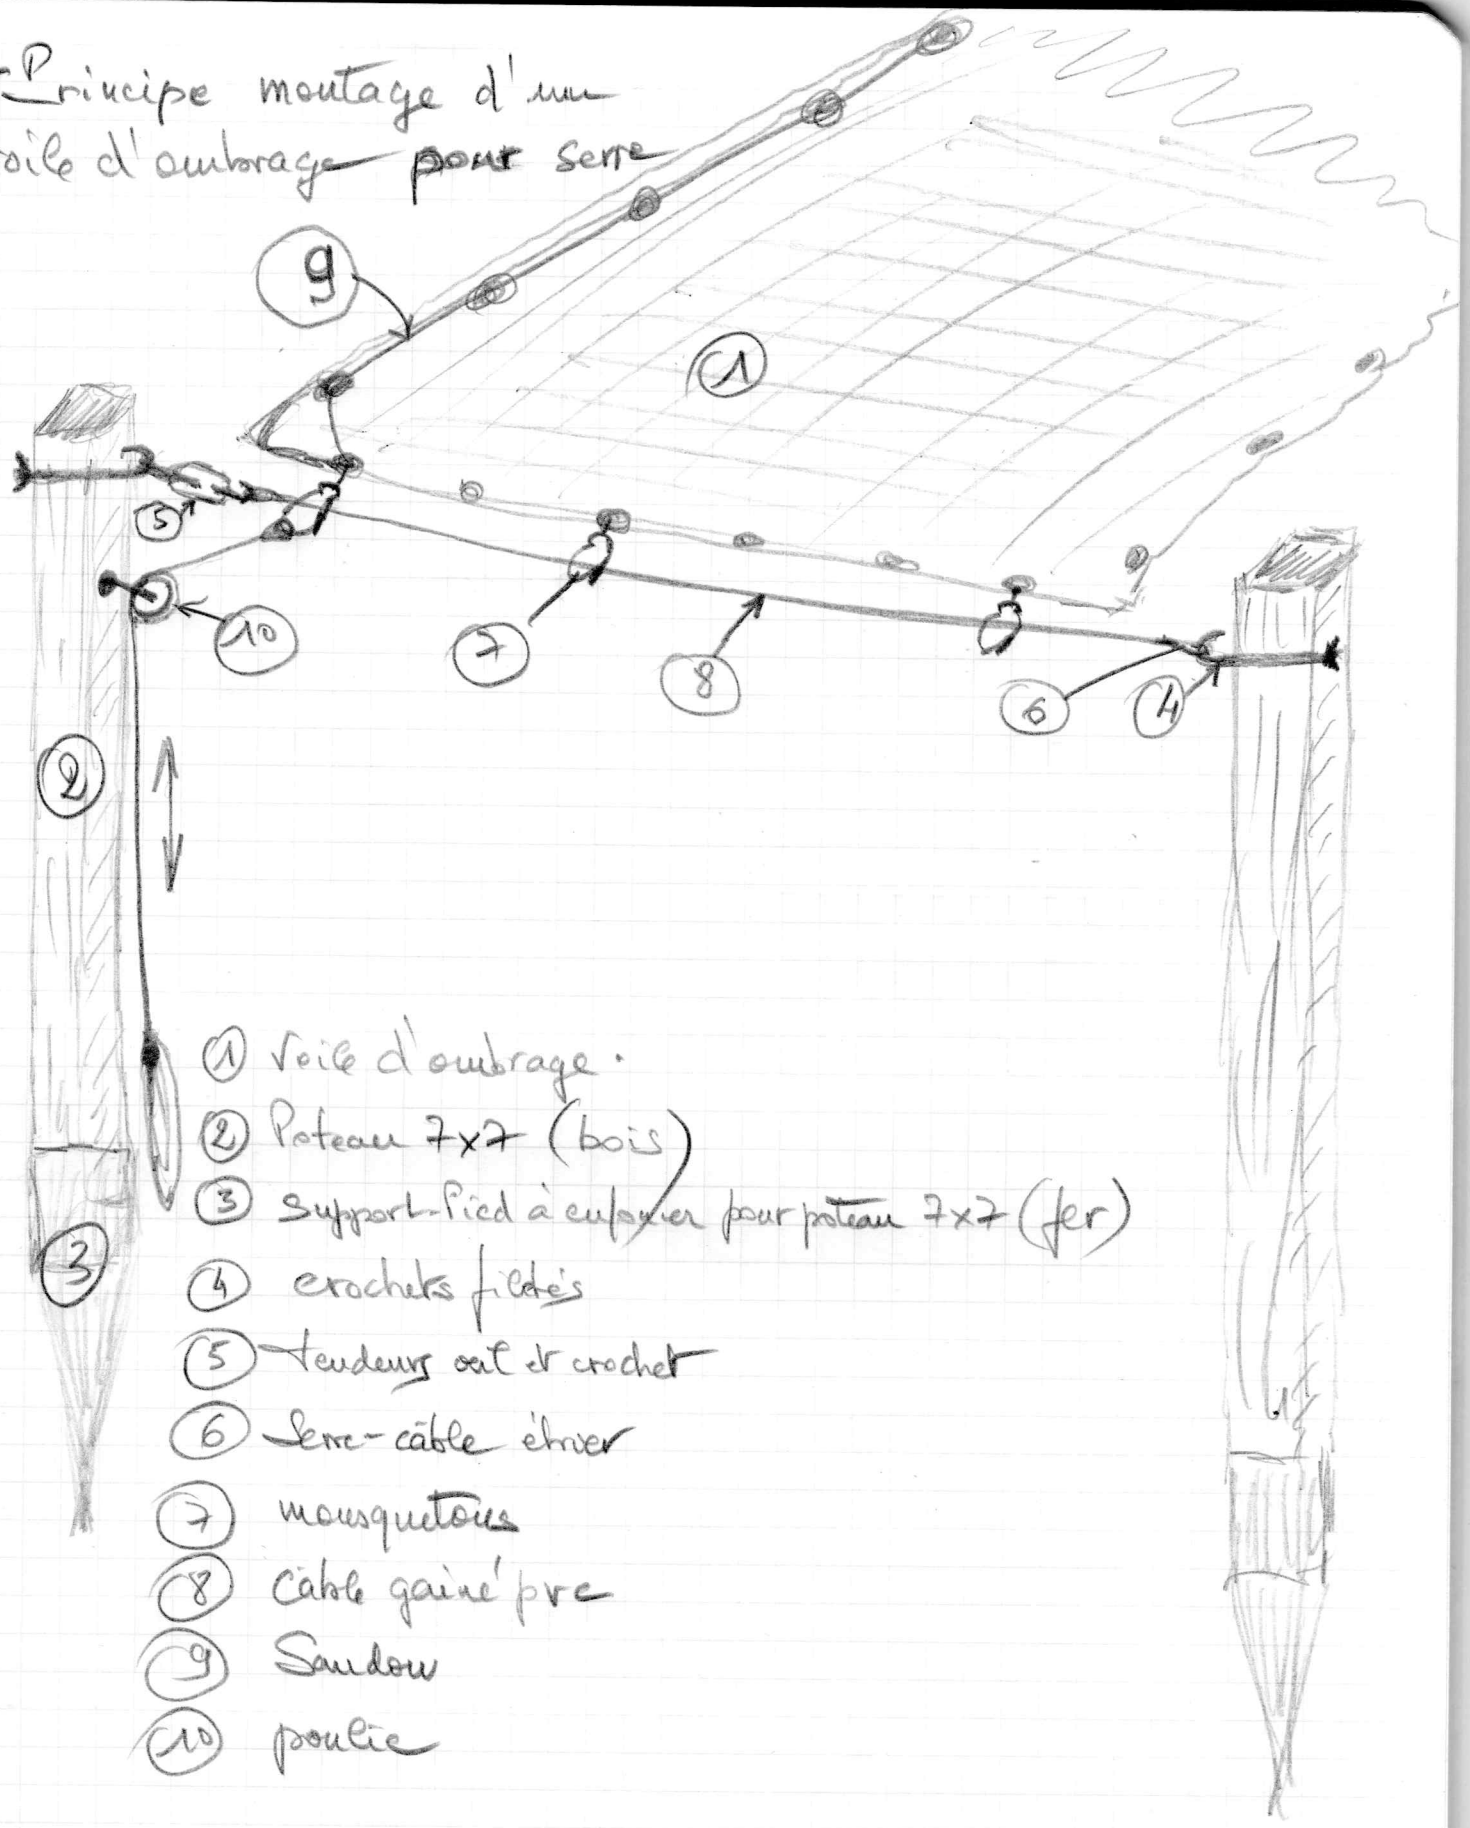 Principe montage d'un
voile d'ombrage pour serre
9
1
5
10
7
8
6
4
2
3
① Voile d'ombrage.
② Poteau 7x7 (bois)
③ Support-Pied à enfoncer pour poteau 7x7 (fer)
④ crochets filetés
⑤ tendeurs oeil et crochet
⑥ Serre-câble étrier
⑦ mousquetons
⑧ Câble gainé pvc
⑨ Sandow
⑩ poulie